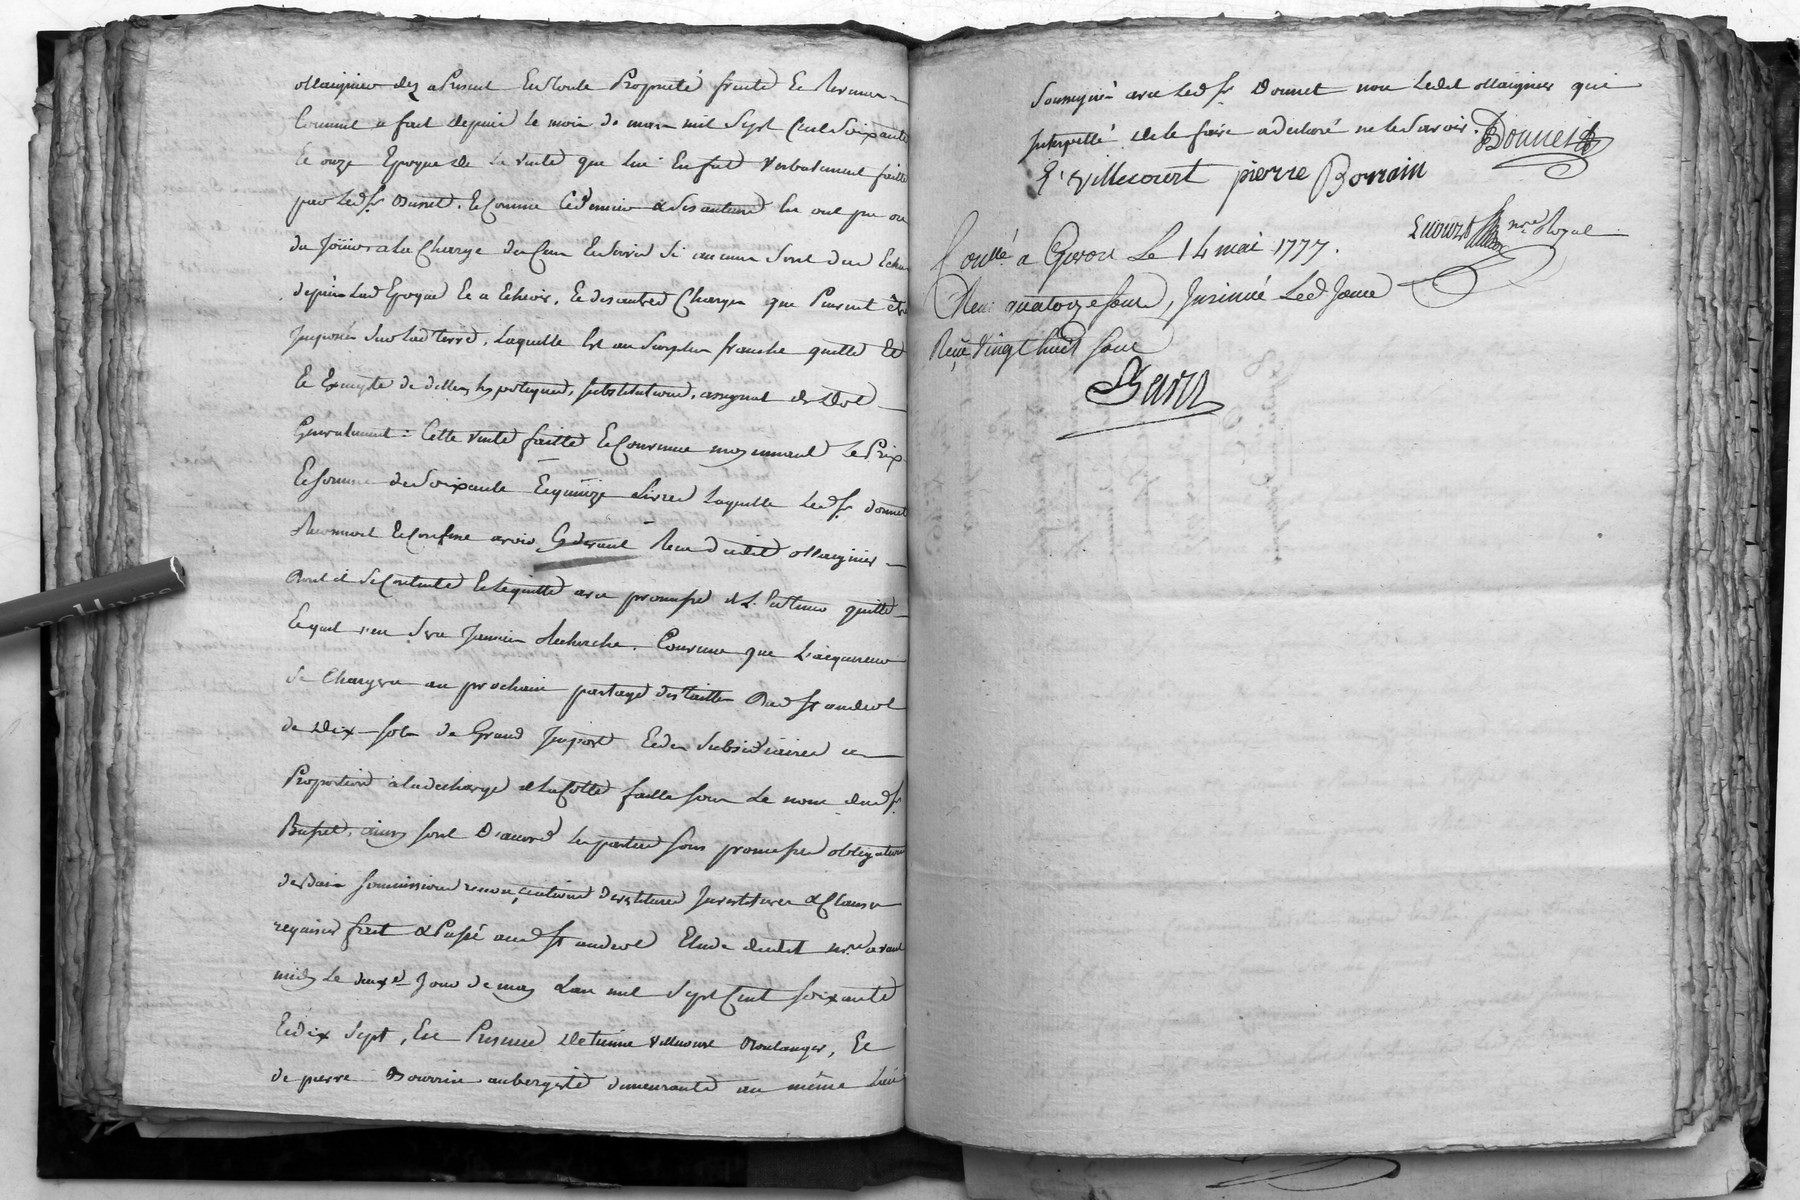 Maignier dez a Present En toute Proprieté fruits Et Revenus
Comme a fait depuis le mois de mars mil Sept Cent Soixante
Et onze Epoque de la vente que lui En fut verbalement faitte
par Led. Sr. Et Comme Ce dernier & Ses auteurs En ont pu ou
du Joüir a la Charge du Cens Et Servis Si aucuns Sont dus Echus
depuis Lad. Epoque Et a Echeoir, Et des autres Charges que Peuvent être
Imposés Sur Lad. terre, Laquelle Est au Surplus franche quitte Et
Et Exempte de dettes hypoteques, Substitutions, assignat de Dot
Generalement : Cette vente faitte Et Convenue moyennant Le Prix
Et Somme de Soixante Et quinze Livres Laquelle Led. Sr. Donnet
Reconnoit Et Confesse avoir Cy devant Reçu dudit Maignier
Dont il Se Contente Et L'equitte avec promesse de L'en tenir quitte
Et qu'il n'en Sera Jamais Recherché. Convenu que L'acquereur
Se Chargera au prochain partage des tailles Dud. St. andeol
de Dix sols de Grand Import Et des Subsidiaires a
Proportion a la decharge de la Cotte faitte sous Le nom dud. Sr.
ainsy sont D'accord les parties sous promesses obligations
de Biens Soumissions renonçations Devestitures Investitures & Clauses
requises fait & Passé aud. St. andeol Etude dudit nre. avant
midy Le deuxe. Jour de may L'an mil Sept Cent soixante
Et dix Sept, En Presence d'Etienne Villecourt Boulanger, Et
de pierre Bourrin aubergiste demeurants au même Lieu
Soussignés avec Led. Sr. Donnet non Ledit Maignier qui
Interpellé de le faire a declaré ne le Savoir. Donnet
E. villecourt pierre Borrain
nre. Royal
Conllé. a Givors Le 14 mai 1777.
Reçu quatorze sous, Insinué Led. Jour
Reçu Vingt huit sous